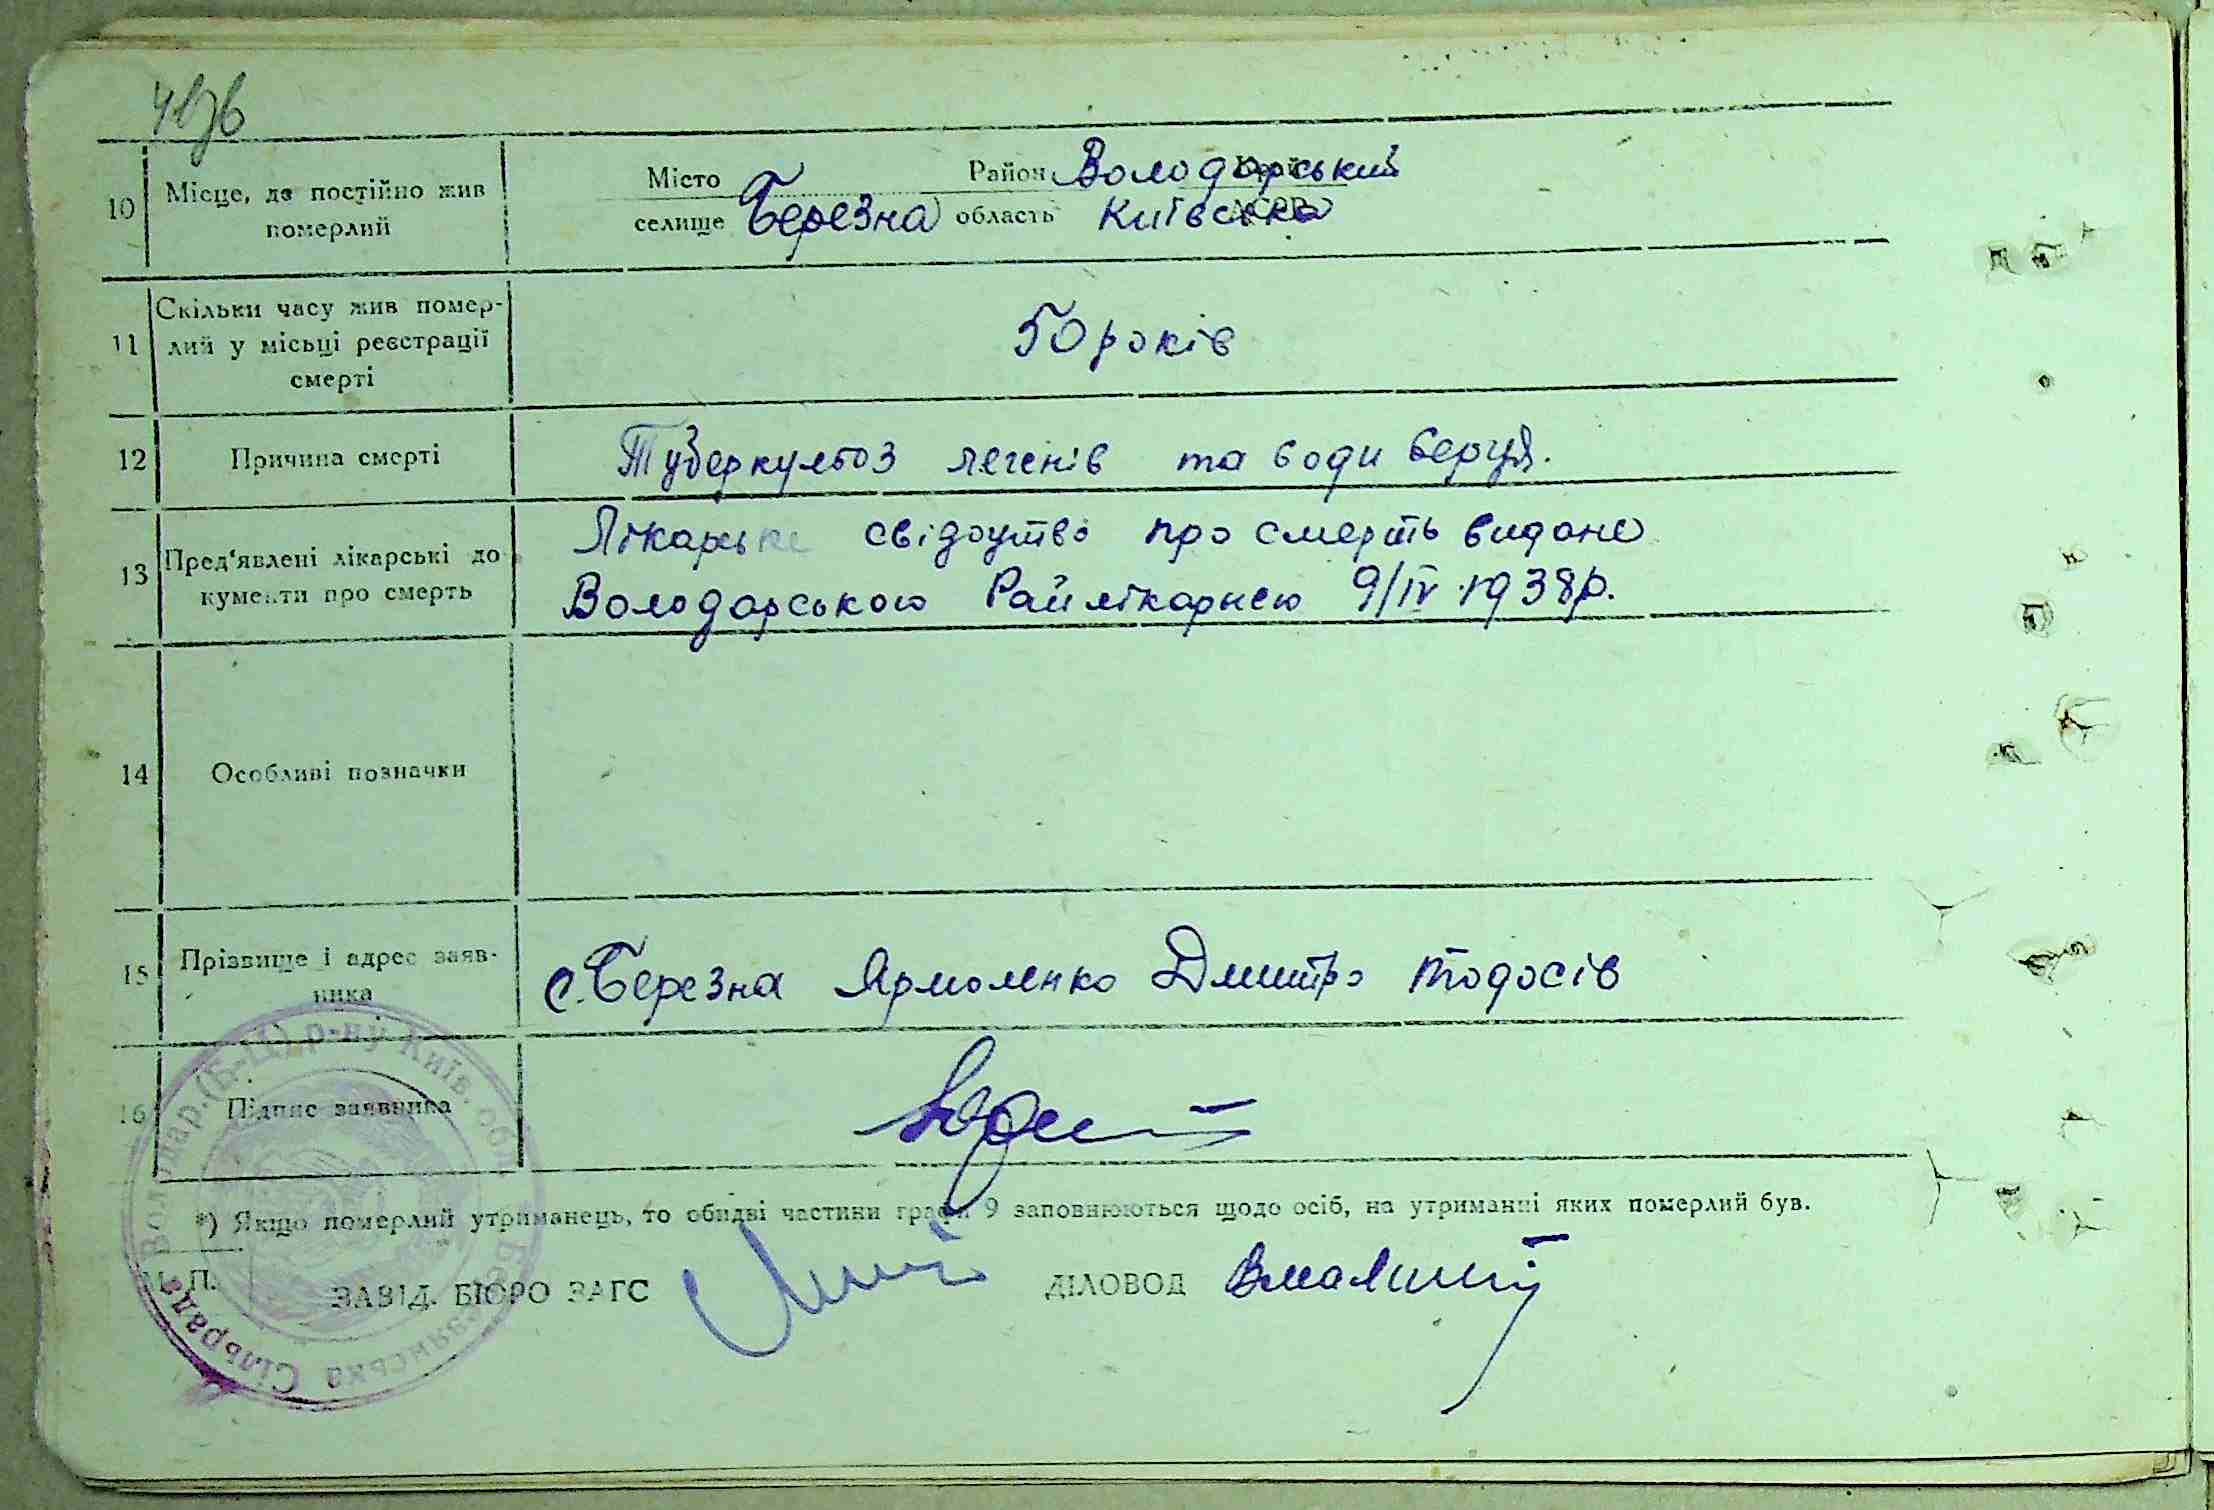 10 Місце, де постійно жив померлий
Місто селище Березна Район Володарський
область Київська
11 Скільки часу жив помер-
лий у місьці реєстрації
смерті
50 років
12 Причина смерті
Туберкульоз легенів та води серця.
13 Пред'явлені лікарські до
кументи про смерть
Лікарське свідоцтво про смерть видане
Володарською Райлікарнею 9/IV 1938р.
14 Особливі позначки
15 Прізвище і адрес заяв-
ника
с. Березна Ярмоленко Дмитро Тодосів
16 Підпис заявника
*) Якщо померлий утриманець, то обидві частини графи 9 заповнюються щодо осіб, на утриманні яких померлий був.
М. П. ЗАВІД. БЮРО ЗАГС ДІЛОВОД
Володар. (Б-Ц) р-ну Київ. обл. Березнянська Сільрада